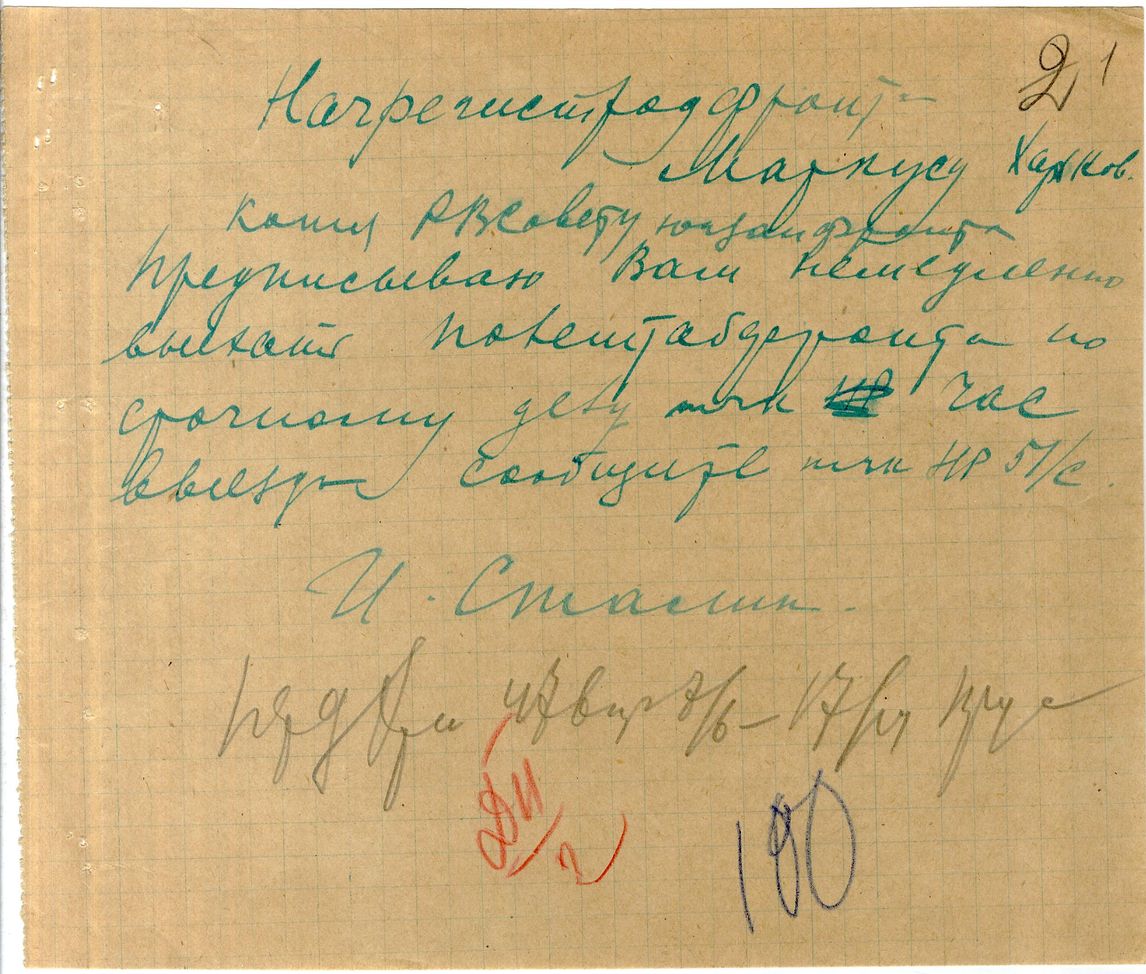 21
Начрегистрод фронта
Маркусу Харков.
Копия РВСовету югзапфронта
Предписываю Вам немедленно
выехать полештабфронта по
срочному делу тчк час
выезда сообщите тчк НР 51/с.
И. Сталин.
190